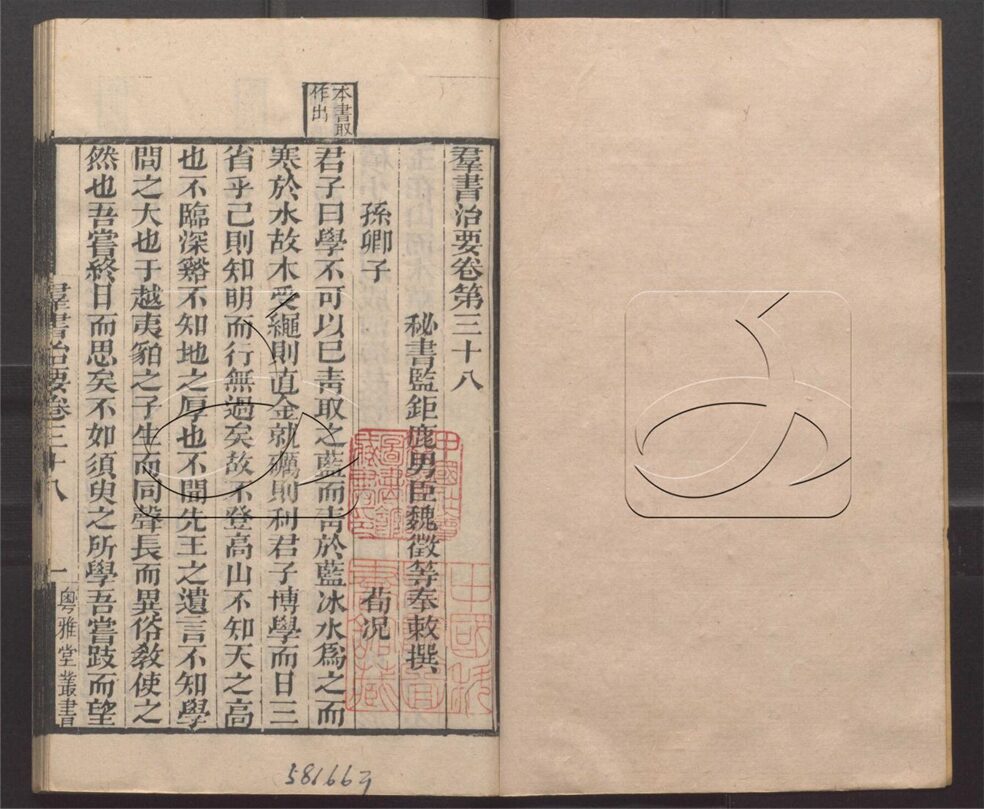 羣書治要卷第三十八
秘書監鉅鹿男臣魏徵等奉敕撰
孫卿子 荀况
君子曰學不可以已靑取之藍而靑於藍冰水爲之而
寒於水故木受繩則直金就礪則利君子博學而日三
省乎己則知明而行無過矣故不登高山不知天之高
也不臨深谿不知地之厚也不聞先王之遺言不知學
問之大也于越夷貉之子生而同聲長而異俗敎使之
然也吾嘗終日而思矣不如須臾之所學吾嘗跂而望
本書取
作出
羣書治要卷三十八 一 粵雅堂叢書
581662